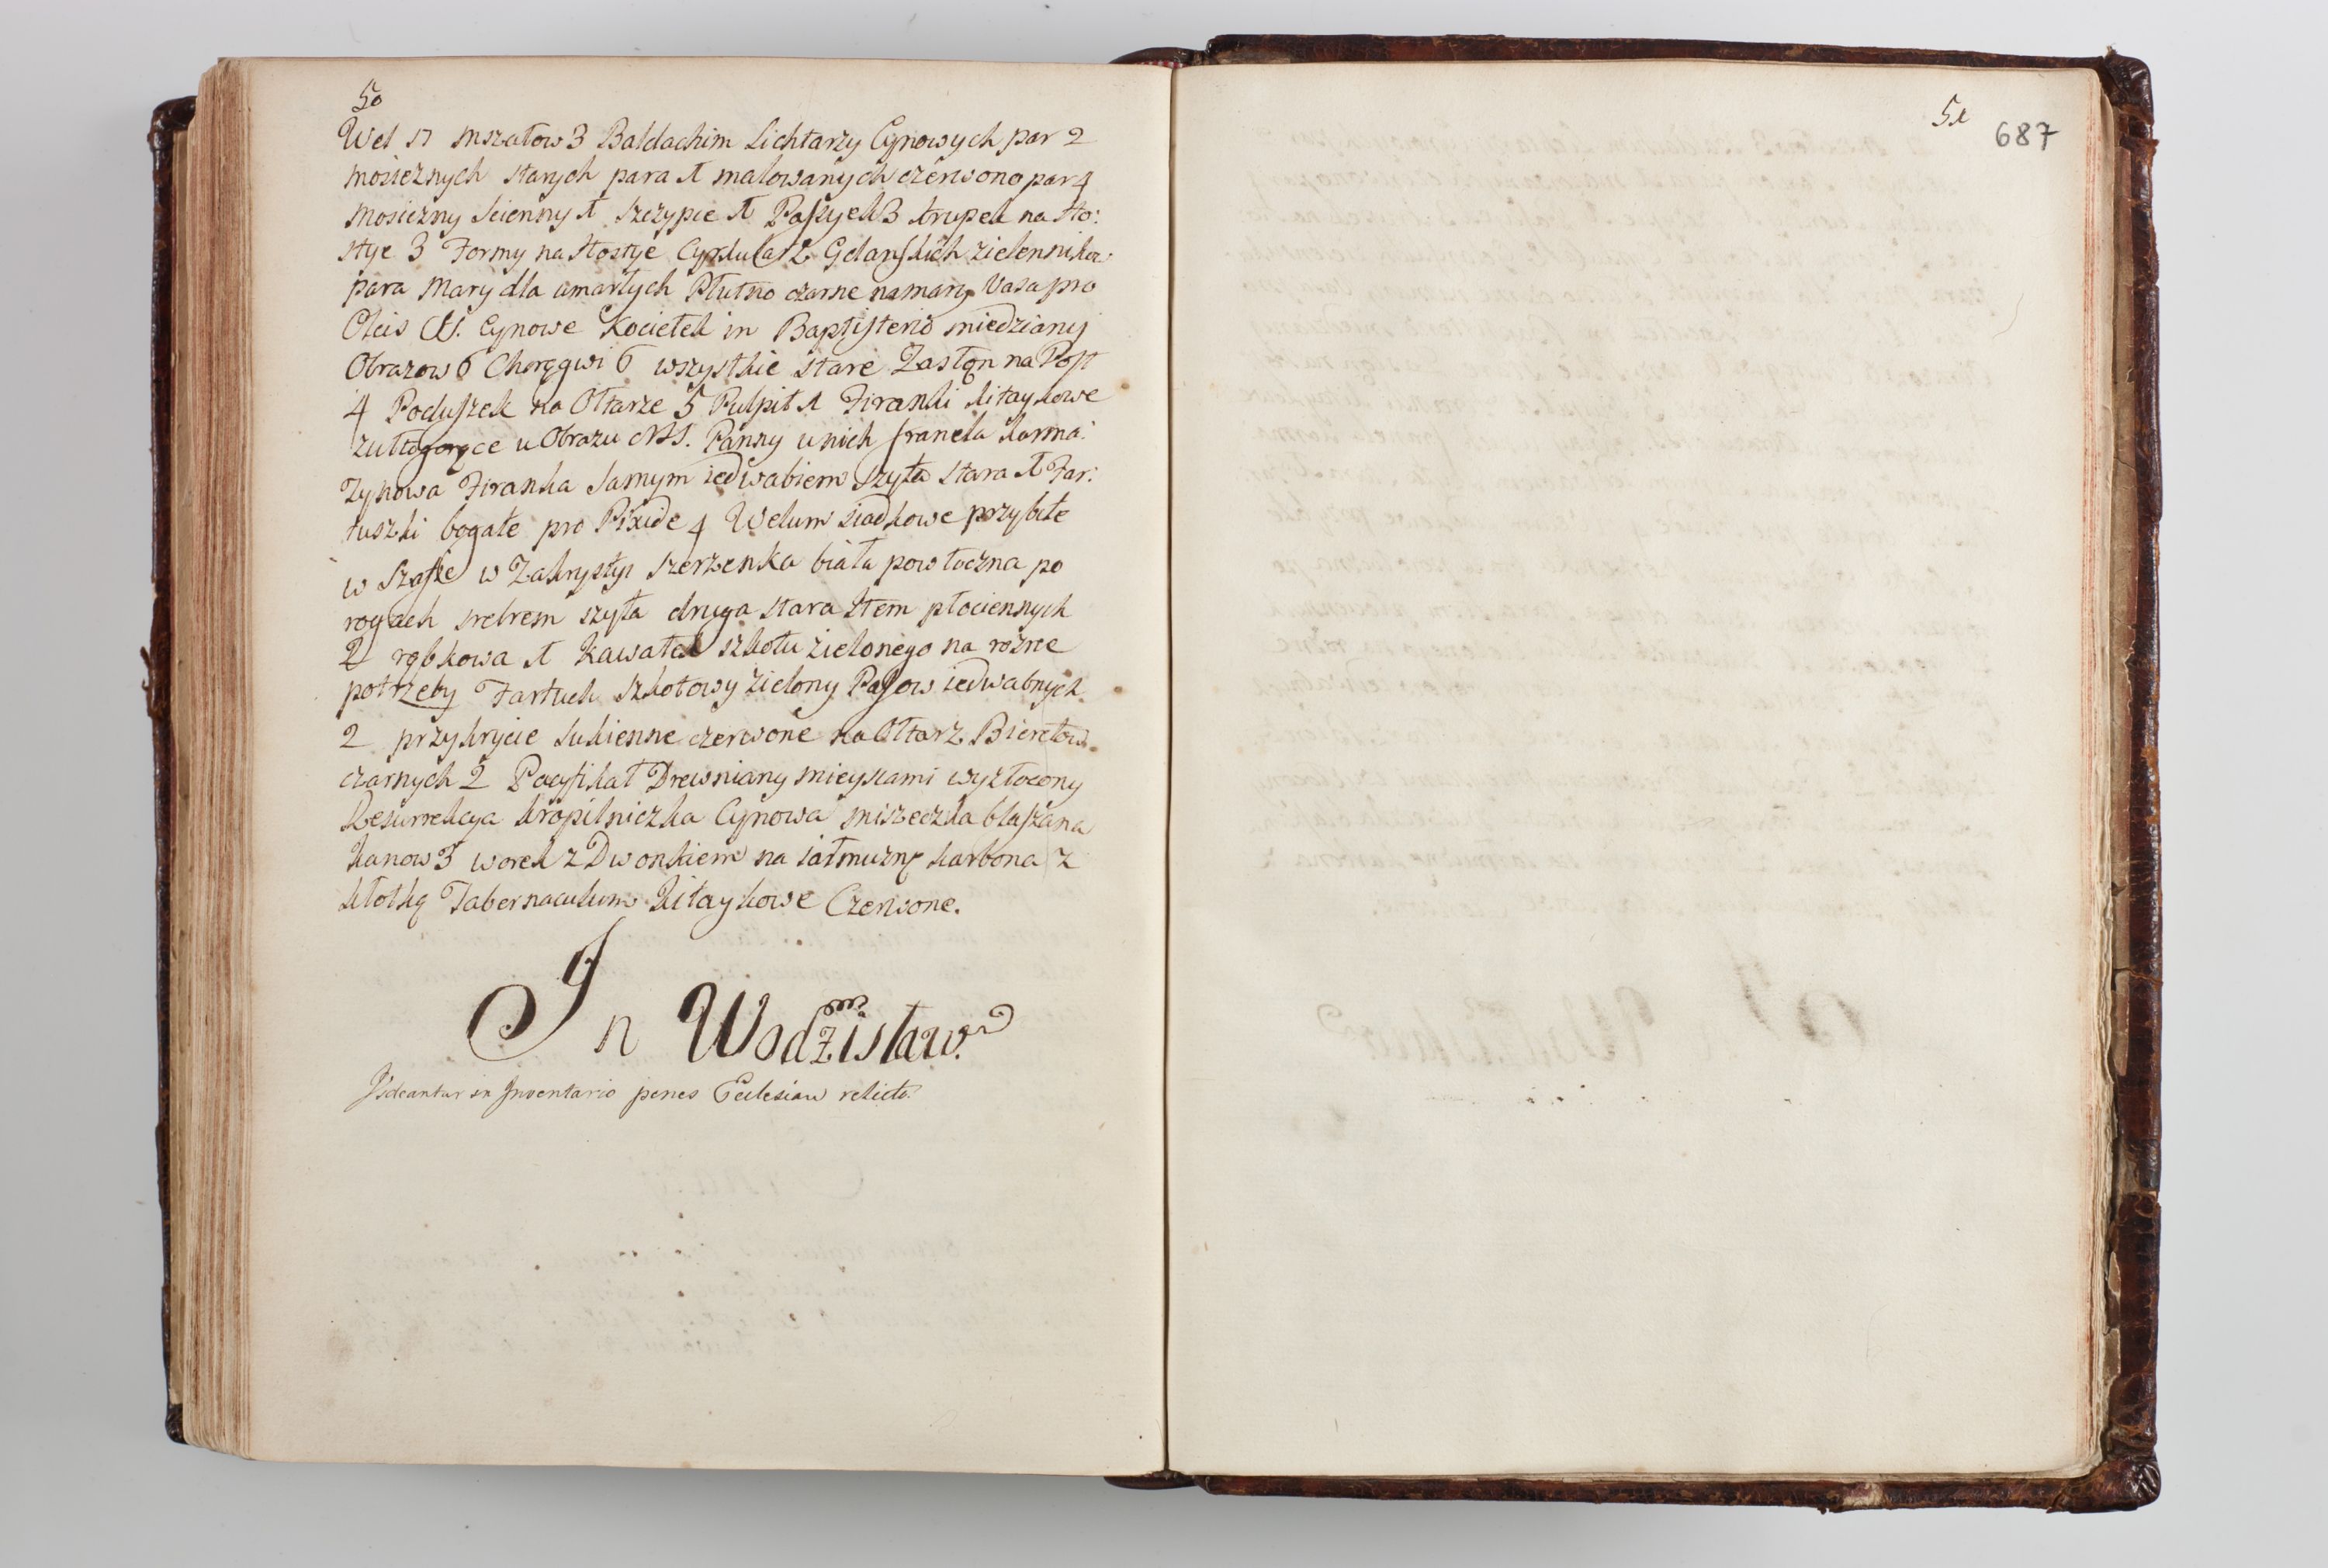 50
Wel 17 mszałow 3 Baldachim Lichtarzy Cynowych par 2
mosieznych starych para 1 malowanych czerwono par 4
mosiezny scienny 1 szczypce 1 Paszyek 3 trupek na Ho:
stye 3 Formy na Hostye Cyrkuła 2 Gdanskich zielennikow
para Mary dla umarłych Płutno czarne na mary Vasa pro
Oleis S. Cynowe Kociełek in Baptisterio miedziany
Obrazow 6 Choręgwi 6 wszystkie stare Zasłon na Post
4 Poduszek na Ołtarze 5 Pulpit 1 Firanki kitaykowe
zułtogorące u Obrazu NS. Panny u nich franela karma:
zynowa Firanka samym iedwabiem szyta stara 1 Far:
tuszki bogate pro Pixide 4 Welum siadkowe przybite
w Szafie w Zakrystyi szerzenka biała powłoczna po
rogach srebrem szyta druga stara Item płociennych
2 rąbkowa 1 Kawałek szkotu zielonego na rozne
potrzeby Fartuch szkotowy zielony Pasow iedwabnych
2 przykrycie sukienne czerwone na Ołtarz Bieretow
czarnych 2 Pacyfikał Drewniany mieyscami wyzłocony
Resurrekcya kropilniczka Cynowa miseczka blaszana
kanow 3 worek z Dwonkiem na iałmuznę karbona z
kłotką Tabernaculum kitaykowe Czerwone.
In Wodzisław.
Videantur in Inventario penes Ecclesiam relicto.
51
687